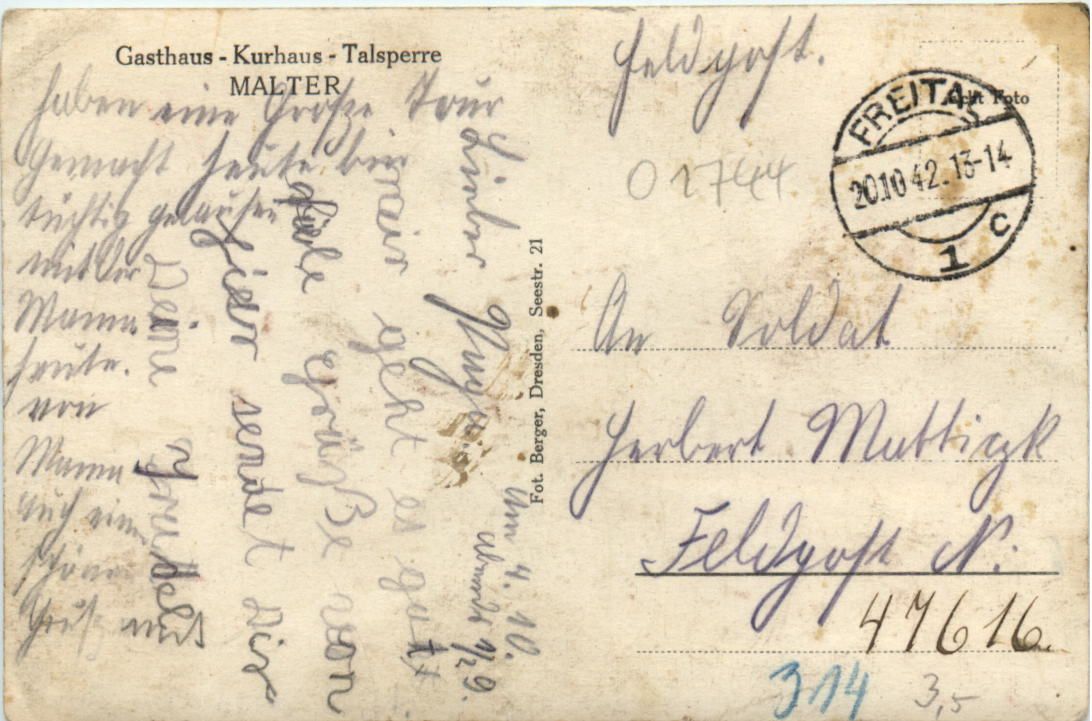 Gasthaus - Kurhaus - Talsperre
MALTER
haben eine Große Tour
Gemacht heute bin
tüchtig gelaufen
mit der
Mama
heute.
von
Mama
auch einen
schönen
Gruß mit
Am 4. 10.
abends 1/2 9.
Lieber
mir geht es gut
Viele Grüße von
hier sendet Dir
Deine
Fot. Berger, Dresden, Seestr. 21
Feldpost.
Echt Foto
FREITAL
20.10.42.13-14
1 c
An Soldat
Herbert
Feldpost N.
47616.
314
3,5